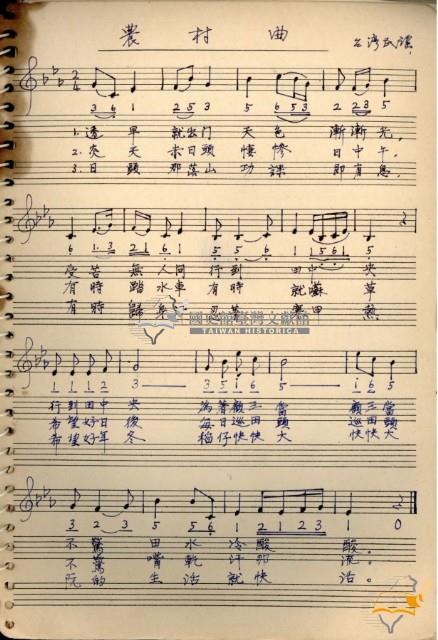 農村曲
台灣民謠
3 6 1 2 5 3 5 6 5 3 2 2 3 5
1. 透早 就出门 天色 漸漸光,
2. 炎天 赤日頭 悽慘 日中午,
3. 日頭 那落山 功課 即有息,
6 1 3 2 1 6 1 5 5 6 1 1 5 6 1 5
受苦 無人問 行到 田中央
有時 踏水車 有時 就嗦草
有時 歸
國史館臺灣文獻館
TAIWAN HISTORICA
1 1 1 2 3 3 5 i 6 5 i 6 5
行到田中央 為著顧三當 顧三當
希望好日後 每日巡田頭 巡田頭
希望好年冬 稻仔快快大 快快大
3 2 3 2 5 5 6 1 2 1 2 3 1 0
不驚 田水 冷酸酸。
不驚 嘴乾 汗那流。
阮的 生活 就快活。